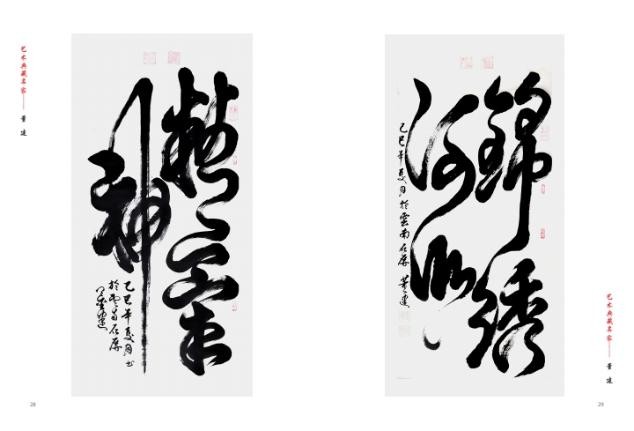 艺术典藏名家—— 董 建
精氣
神
乙巳年夏月书
於雲南石屏
董建
28
錦綉
河山
乙巳年夏月於雲南石屏 董建
艺术典藏名家—— 董 建
29